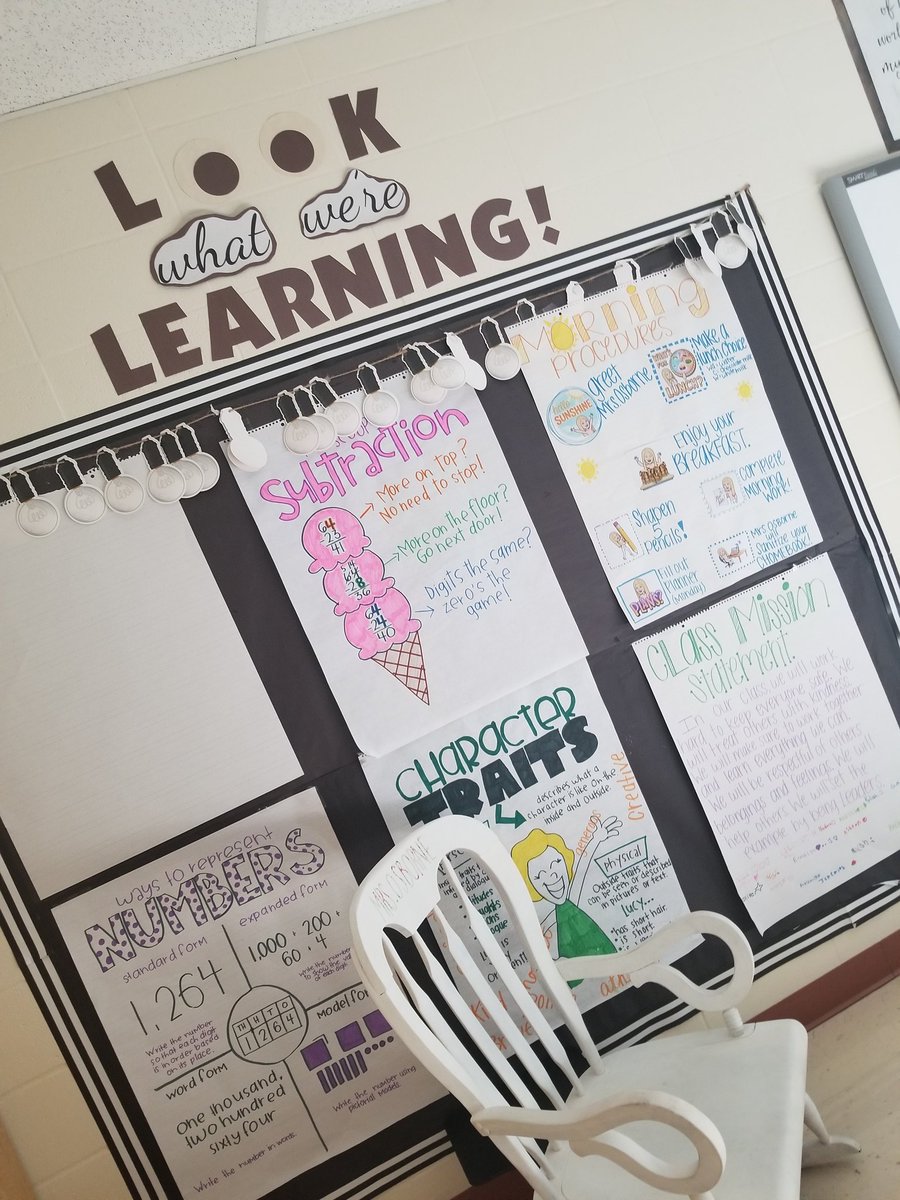 LOOK
what we're
LEARNING!
Subtraction
More on top?
No need to stop!
64
-23
41
More on the floor?
Go next door!
5 14
64
28
36
Digits the same?
zero's the
game!
64
-24
40
Morning
Procedures
SUNSHINE
Greet
Mrs. Osborne
LUNCH?
Make a
lunch choice
Enjoy your
Breakfast.
Sharpen
5
pencils!
Complete
Morning
Work!
PLANS!
Fill out
Planner
(Monday)
Mrs. Osborne
will
sanitize your
CHROMEBOOK!
Class Mission
Statement.
In our class we will work
hard to keep everyone safe. We
will treat others with kindness.
We will make sure to work together
and learn everything we can.
We will be respectful of others
belongings and feelings. We will
help others. We will set the
example by being Leaders.
ways to represent
NUMBERS
standard form
1,264
Write the number
so that each digit
is in order based
on its place.
expanded form
1,000 + 200 +
60 + 4
Write the number
to show the value
of each digit.
TH H T O
1 2 6 4
word form
one thousand,
two hundred
sixty four
Write the number in words.
model form
Write the number using
pictorial models.
Character
TRAITS
describes what a
character is like on the
inside and outside.
creative
generous
Physical
Outside traits that
can be seen or described
in pictures or text.
Lucy...
*has short hair.
*is short.
SMART